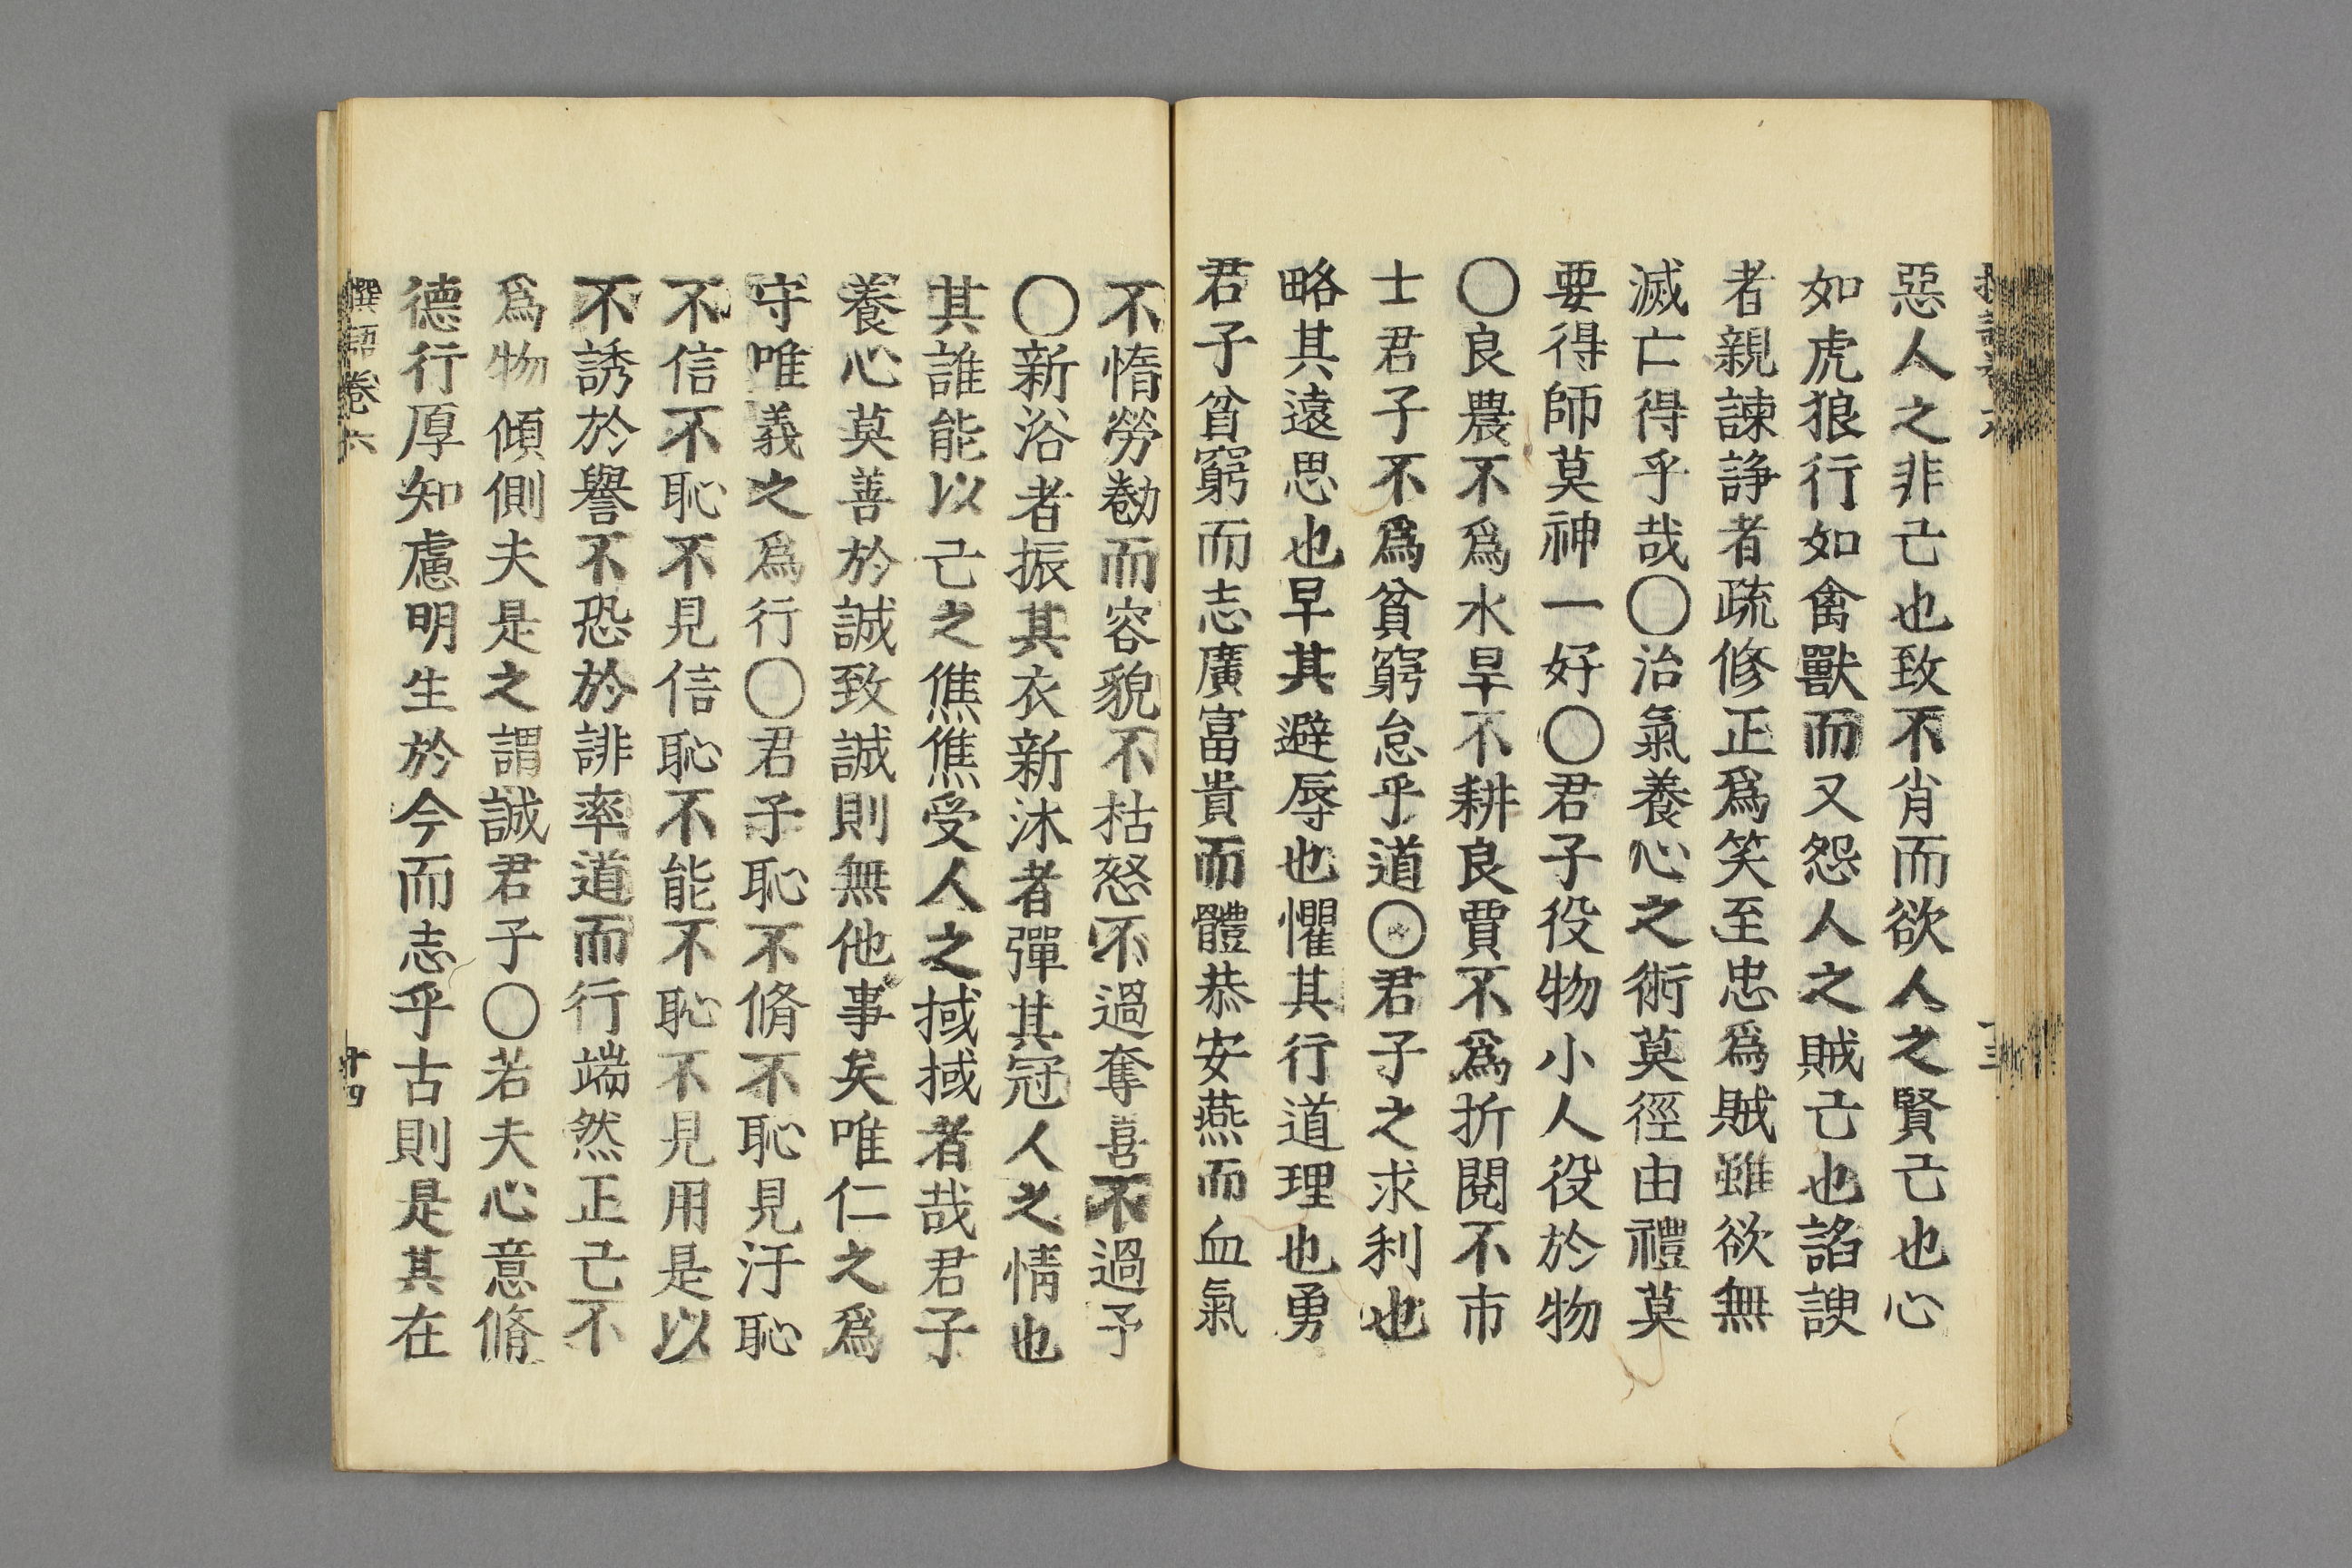 惡人之非己也致不肖而欲人之賢己也心
如虎狼行如禽獸而又怨人之賊己也諂諛
者親諫諍者疏修正爲笑至忠爲賊雖欲無
滅亡得乎哉〇治氣養心之術莫徑由禮莫
要得師莫神一好〇君子役物小人役於物
〇良農不爲水旱不耕良賈不爲折閱不市
士君子不爲貧窮怠乎道〇君子之求利也
略其遠思也早其避辱也懼其行道理也勇
君子貧窮而志廣富貴而體恭安燕而血氣
不惰勞勌而容貌不枯怒不過奪喜不過予
〇新浴者振其衣新沐者彈其冠人之情也
其誰能以己之僬僬受人之掝掝者哉君子
養心莫善於誠致誠則無他事矣唯仁之爲
守唯義之爲行〇君子恥不脩不恥見汙恥
不信不恥不見信恥不能不恥不見用是以
不誘於譽不恐於誹率道而行端然正己不
爲物傾側夫是之謂誠君子〇若夫心意脩
德行厚知慮明生於今而志乎古則是其在
語卷六
十四